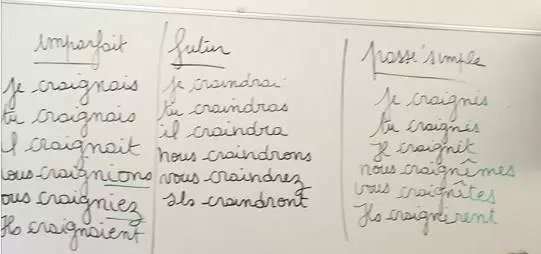 imparfait
je craignais
tu craignais
il craignait
nous craignions
vous craigniez
Ils craignaient
futur
je craindrai
tu craindras
il craindra
nous craindrons
vous craindrez
Ils craindront
passé simple
je craignis
tu craignis
Il craignit
nous craignîmes
vous craignîtes
Ils craignirent